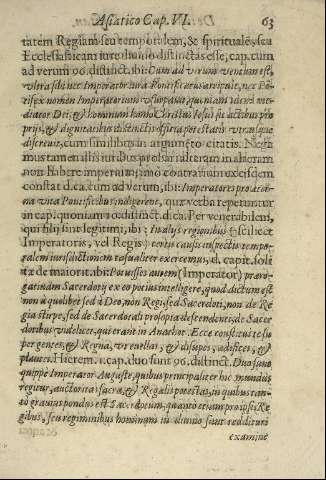 Asiatico Cap. VI. 63
tatem Regiam seu temporalem, & spiritualē, seu
Ecclesiasticam iure diuino distinctas esse, cap. cum
ad verum 96. distinct. ibi: Cum ad verum ventum est,
vltra sibi nec Imperator iura Pontificatus arripuit, nec Pō-
tifex nomen Imperatorium vsurpauit quoniam idem me-
diator Dei, & hominum homo Christus Iesus sic actibus pro
prijs, & dignitatibus distinctis officia potestatis vtriusque
discreuit, cum similibus in argumēto citatis. Nega
mus tamen allis iuribus probari alteram in alteram
non habere imperium imo contrarium ex eisdem
constat d. ca. cum ad verum, ibi: Imperatores pro æter-
na vita Pontificibus indigerent, quæ verba repetuntur
in cap. quoniam 10. distinct. d. ca. Per venerabilem,
qui filij sint legitimi, ibi: In alijs regionibus (scilicet
Imperatoris, vel Regis) certis causis inspectis tempo-
ralem iurisdictionem casualiter exercemus, el. capit. soli
tæ de maiorit. ibi: Potuisses autem (Imperator) præro-
gatiuam Sacerdotij ex eo potius intelligere, quod dictum est
non à quolibet sed à Deo, non Regi, sed Sacerdoti, non de Re
gia stirpe, sed de Sacerdotali prosapia descendenti, de Sacer
dotibus videlicet, qui erant in Anathot. Ecce constitui te su
per gentes, & Regna, vt euellas, & dissipes, ædifices, &
plantes. Hierem. 1. cap. duo sunt 96. distinct. Duo sunt
quippe Imperator Auguste, quibus principaliter hic mundus
regitur, auctoritas sacra, & Regalis potestas, in quibus tan-
to grauius pondus est Sacerdotum, quanto etiam pro ipsis Re
gibus, seu regiminibus hominum in diuino sunt reddituri
examine